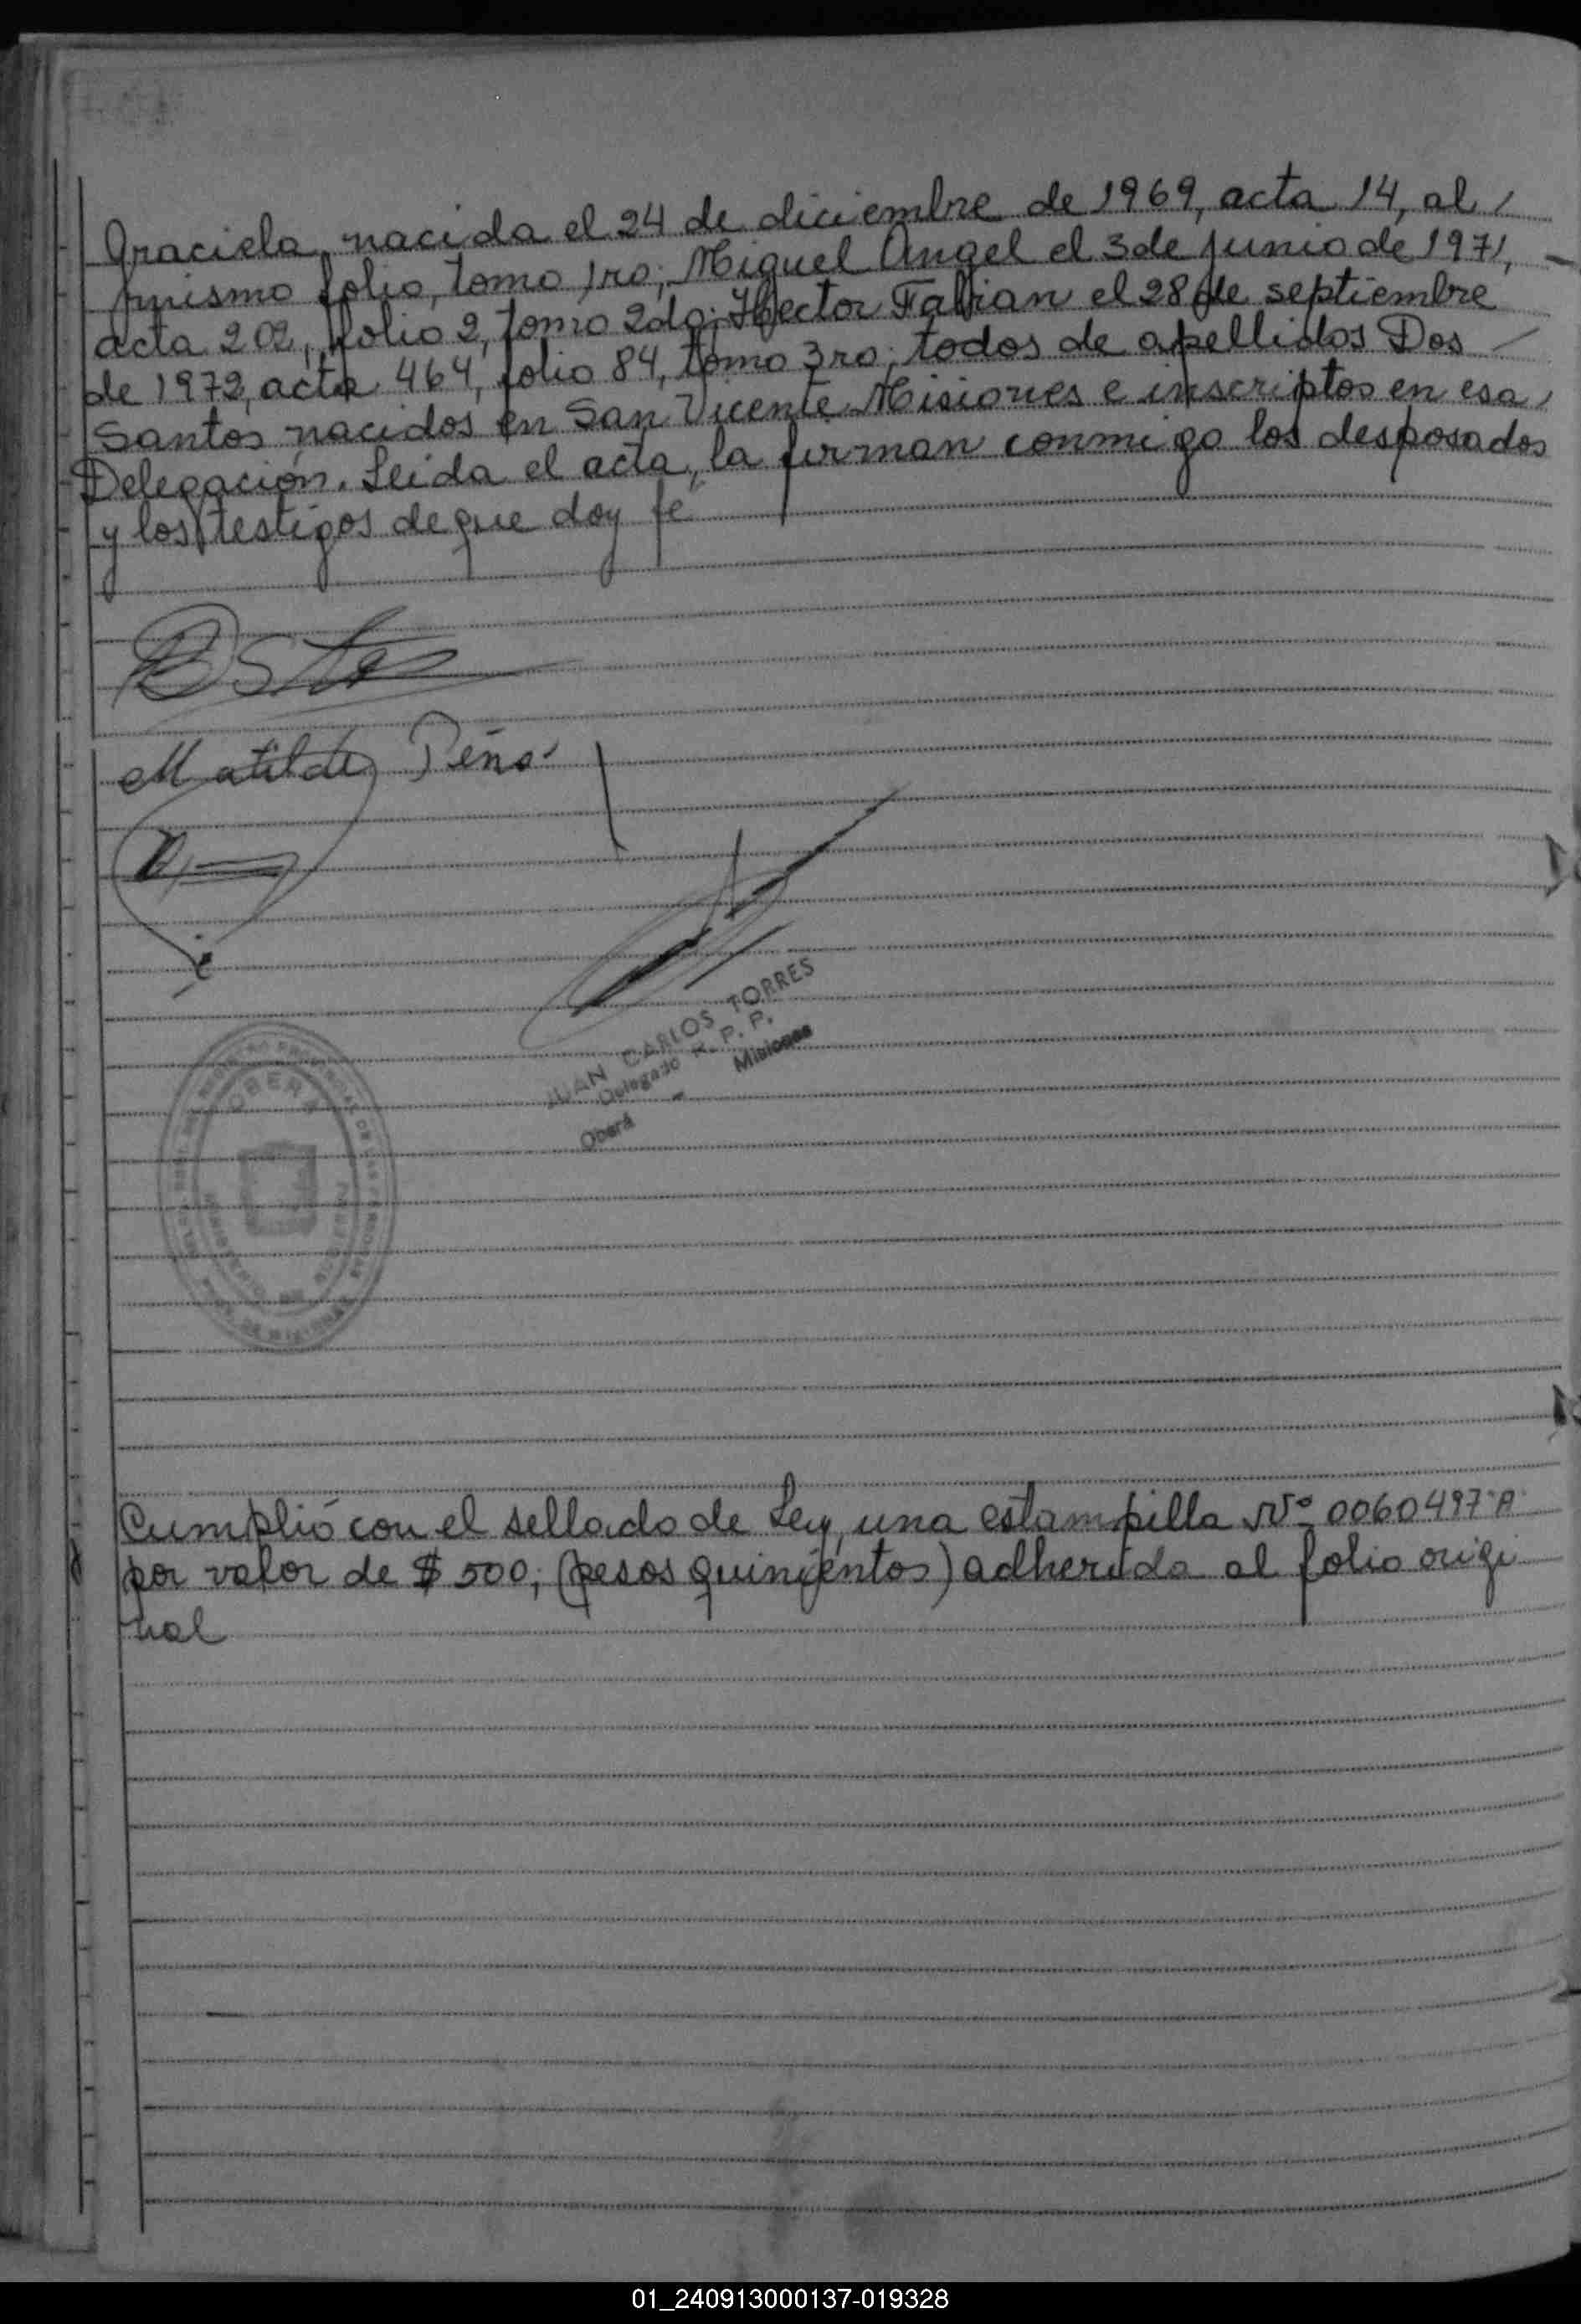 Graciela, nacida el 24 de diciembre de 1969, acta 14, al /
mismo folio, tomo 1ro; Miguel Angel el 3 de junio de 1971, -
acta 202, folio 2, tomo 2do; Hector Fabian el 28 de septiembre
de 1972, acta 464, folio 84, tomo 3ro; todos de apellidos Dos -
Santos nacidos en San Vicente Misiones e inscriptos en esa /
Delegación. Leida el acta, la firman conmigo los desposados
y los testigos de que doy fé
Matilde Peña
JUAN CARLOS TORRES
Delegado R. P. P.
Oberá - Misiones
OBERA
Cumplió con el sellado de Ley, una estampilla Nº 0060497 A
por valor de $ 500; (pesos quinientos) adherida al folio origi
nal
01_240913000137-019328